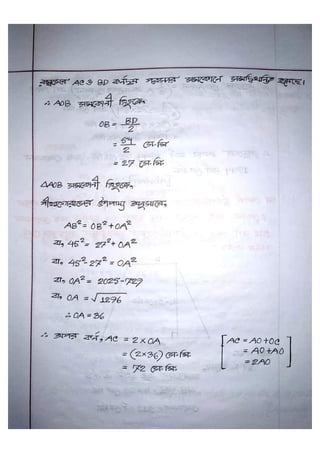 রম্বসের AC ও BD কর্ণদ্বয় পরস্পরকে সমকোণে সমদ্বিখণ্ডিত করেছে।
∴ AOB সমকোণী ত্রিভুজে,
OB = BD/2
= 54/2 সে.মি.
= 27 সে.মি.
△AOB সমকোণী ত্রিভুজে,
পীথাগোরাসের উপপাদ্য অনুসারে,
AB² = OB² + OA²
বা, 45² = 27² + OA²
বা, 45² - 27² = OA²
বা, OA² = 2025 - 729
বা, OA = √1296
∴ OA = 36
∴ অপর কর্ণ, AC = 2 × OA [AC = AO + OC
= (2×36) সে.মি. = AO + AO
= 72 সে.মি. = 2AO]